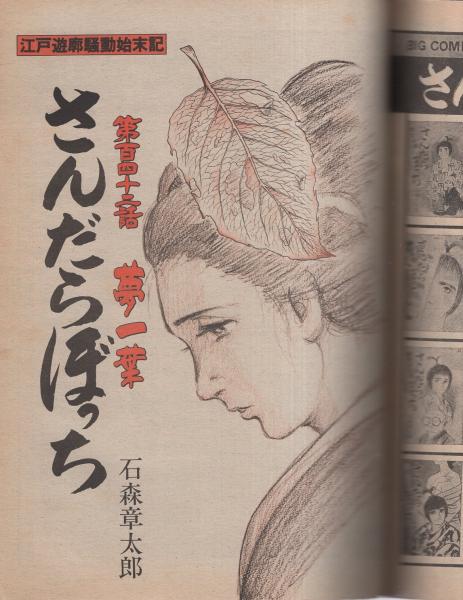 江戸遊廓騒動始末記
さんだらぼっち
第百四十三話
夢一葉
石森章太郎
BIG COMI
さん